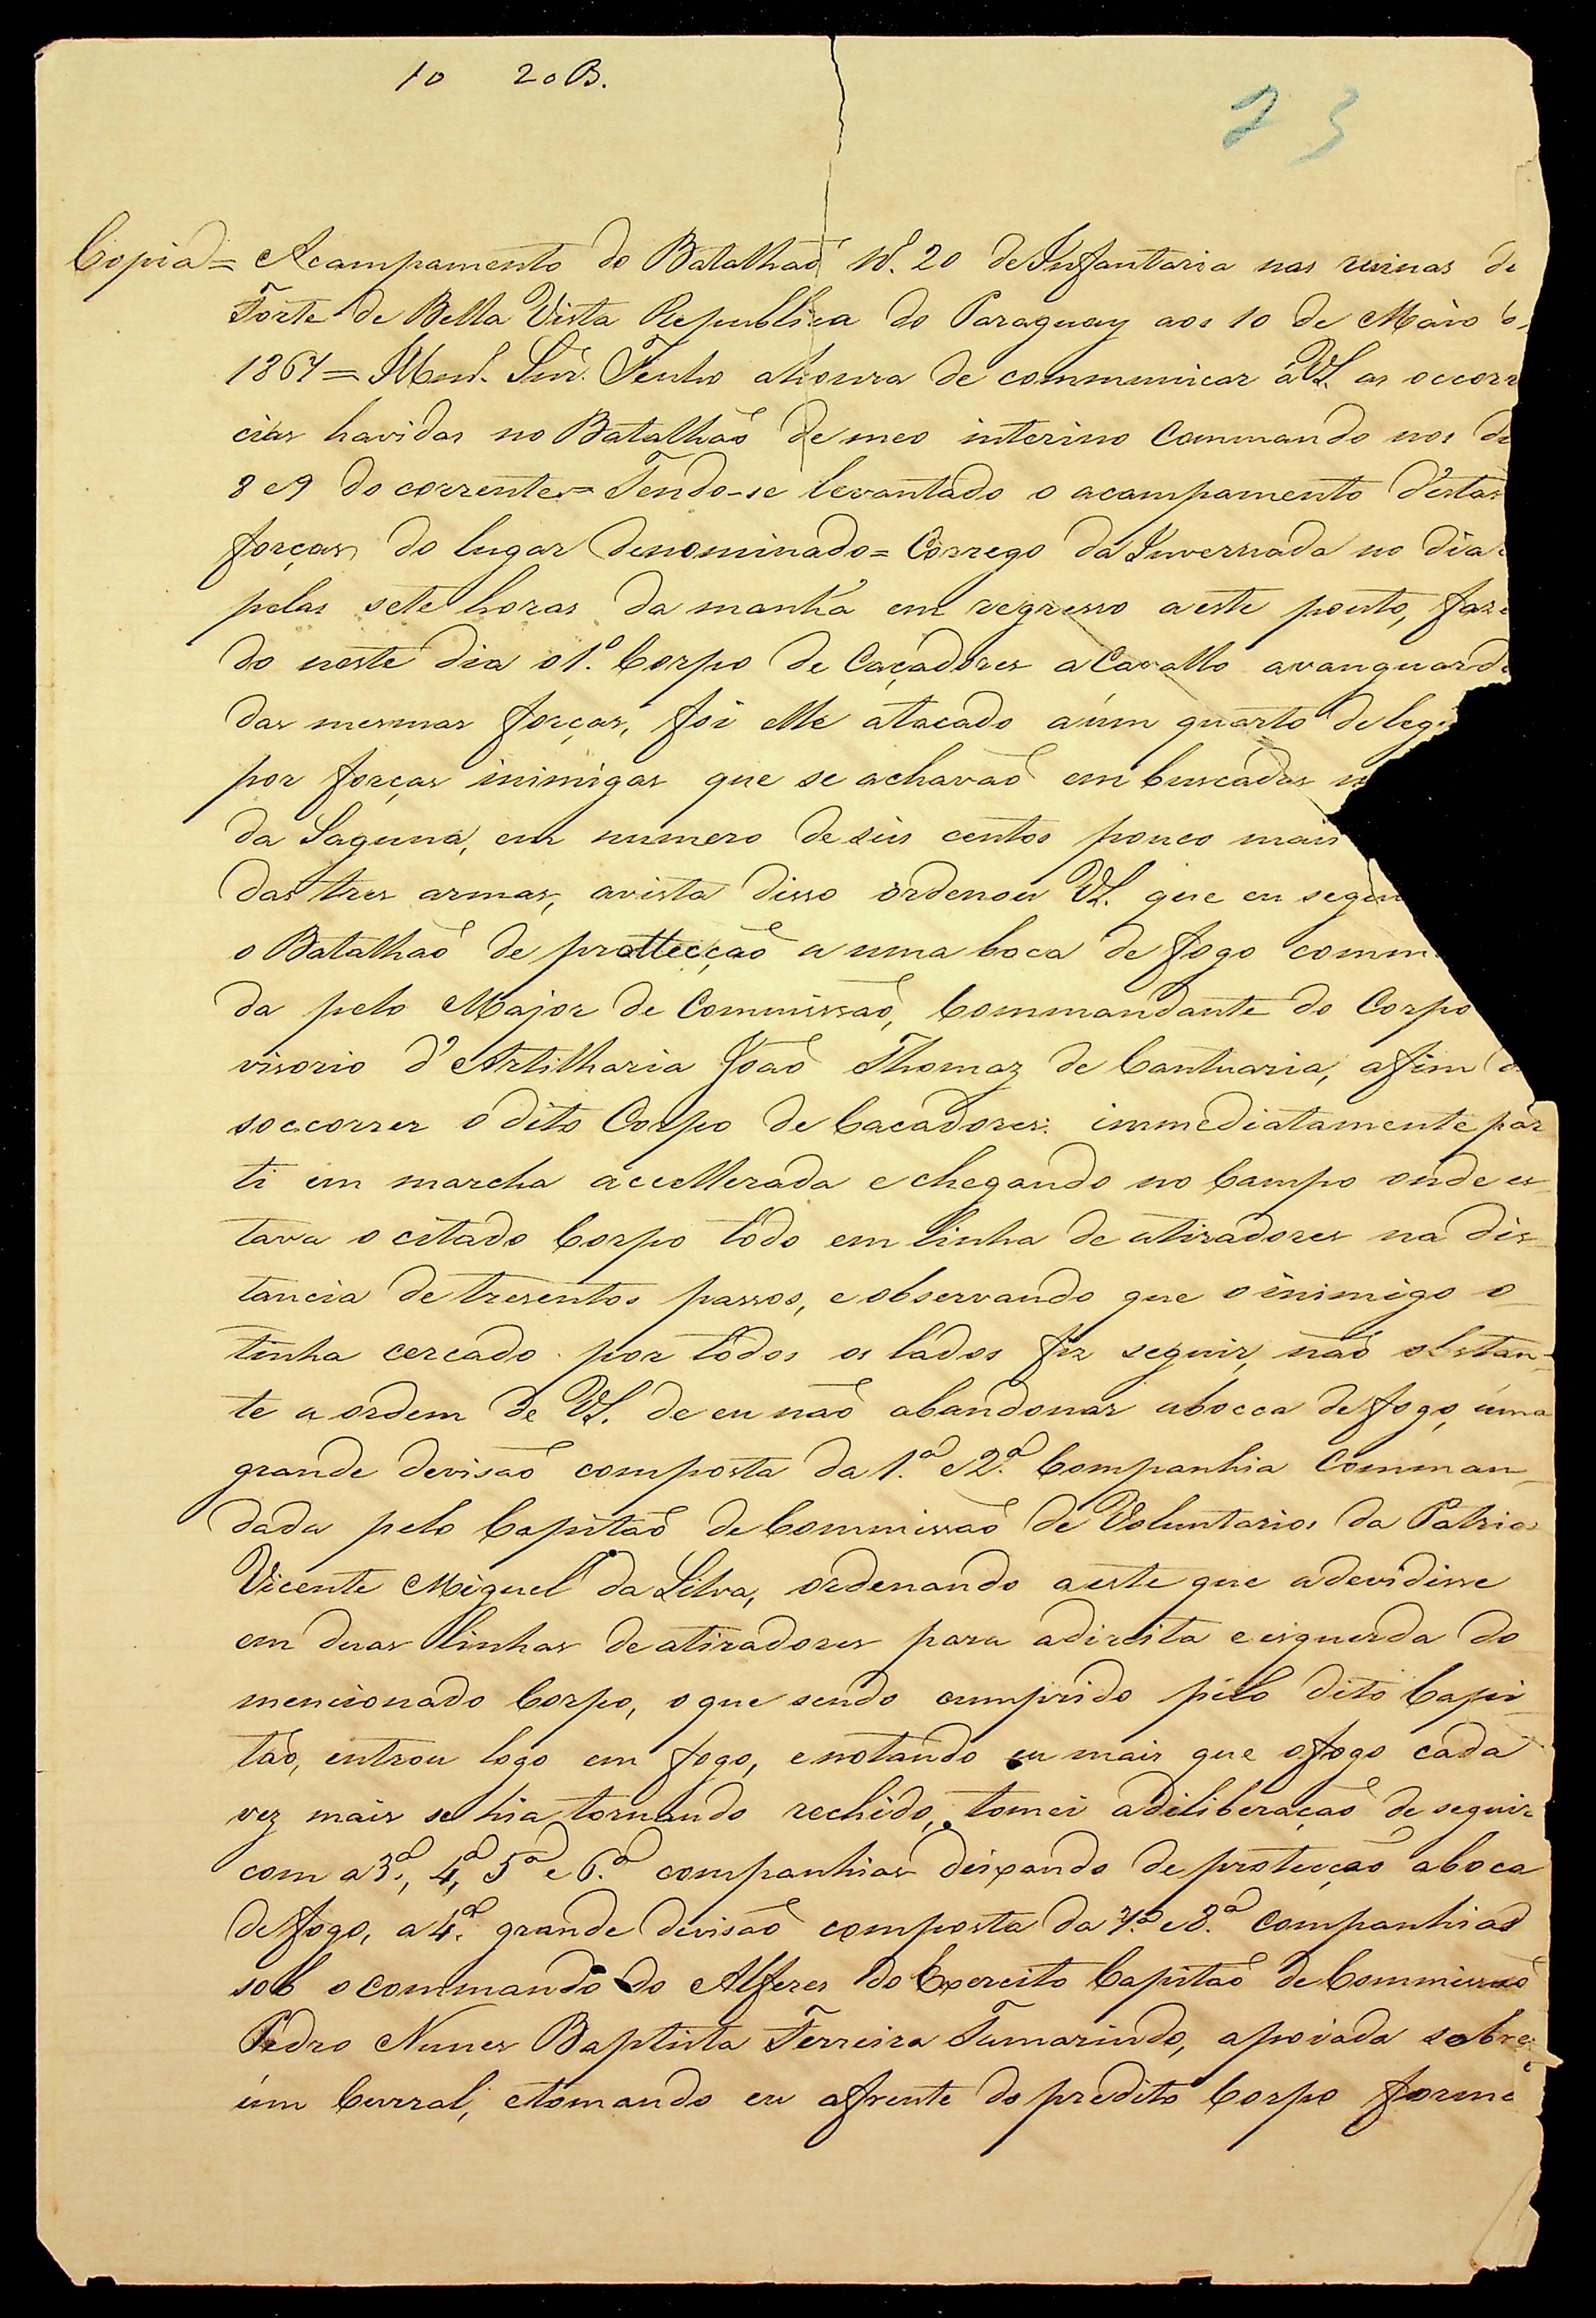 10 20B.
23
Copia = Acampamento do Batalhaõ Nº. 20 de Infantaria nas ruinas do
Forte de Bella Vista Republica do Paraguay aos 10 de Maio
1867 = Illmº. Snr. Tenho ahonra de communicar áVS. as occorr
cias havidas no Batalhaõ de meo interino Commando nos di
8 e 9 do corrente = Tendo-se levantado o acampamento d'estas
forças do lugar denominado = Corrego da Invernada no dia
pelas sete horas da manhã em regresso a este ponto, faze
do neste dia o 1.º Corpo de Caçadores a Cavallo avanguarda
das mesmas forças, foi elle atacado a úm quarto de leg
por forças inimigas que se achavaõ embuscadas
da Laguna, em numero de seis centos pouco mais
das tres armas, avista disso ordenou VS. que eu segui
o Batalhaõ de prottecçaõ a uma boca de fogo comm
da pelo Major de Commissaõ, Commandante do Corpo
visorio d'Artilharia Joaõ Thomaz de Cantuaria, afim d
soccorrer o dito Corpo de Cacadores: immediatamente par
ti em marcha accellerada e chegando no Campo onde es-
tava o citado Corpo todo em linha de atiradores na dis-
tancia de tresentos passos, e observando que o inimigo o
tinha cercado por todos os lados fiz seguir, naõ obstan-
te a ordem de VS. de eu naõ abandonar abocca de fogo, úma
grande devisaõ composta da 1.ª e 2.ª Companhia Comman-
dada pelo Capitaõ de Commissaõ de Voluntarios da Patria
Vicente Miguel da Silva, ordenando a este que adevidisse
em duas linhas de atiradores para adireita e esquerda do
mencionado Corpo, o que sendo cumprido pelo dito Capi-
tão, entrou logo em fogo, e notando eu mais que o fogo cada
vez mais se hia tornando rechido, tomei adiliberaçaõ de seguir
com a 3ª, 4ª, 5ª e 6.ª companhias deixando de protecçaõ aboca
de fogo, a 4.ª grande devisaõ composta da 7.ª e 8.ª Companhias
sob o commando do Alferes do Exercito Capitaõ de Commissaõ
Pedro Nunes Baptista Ferreira Tamarindo, apoiada sobre
úm Curral, e tomando eu afrente do predito Corpo forme